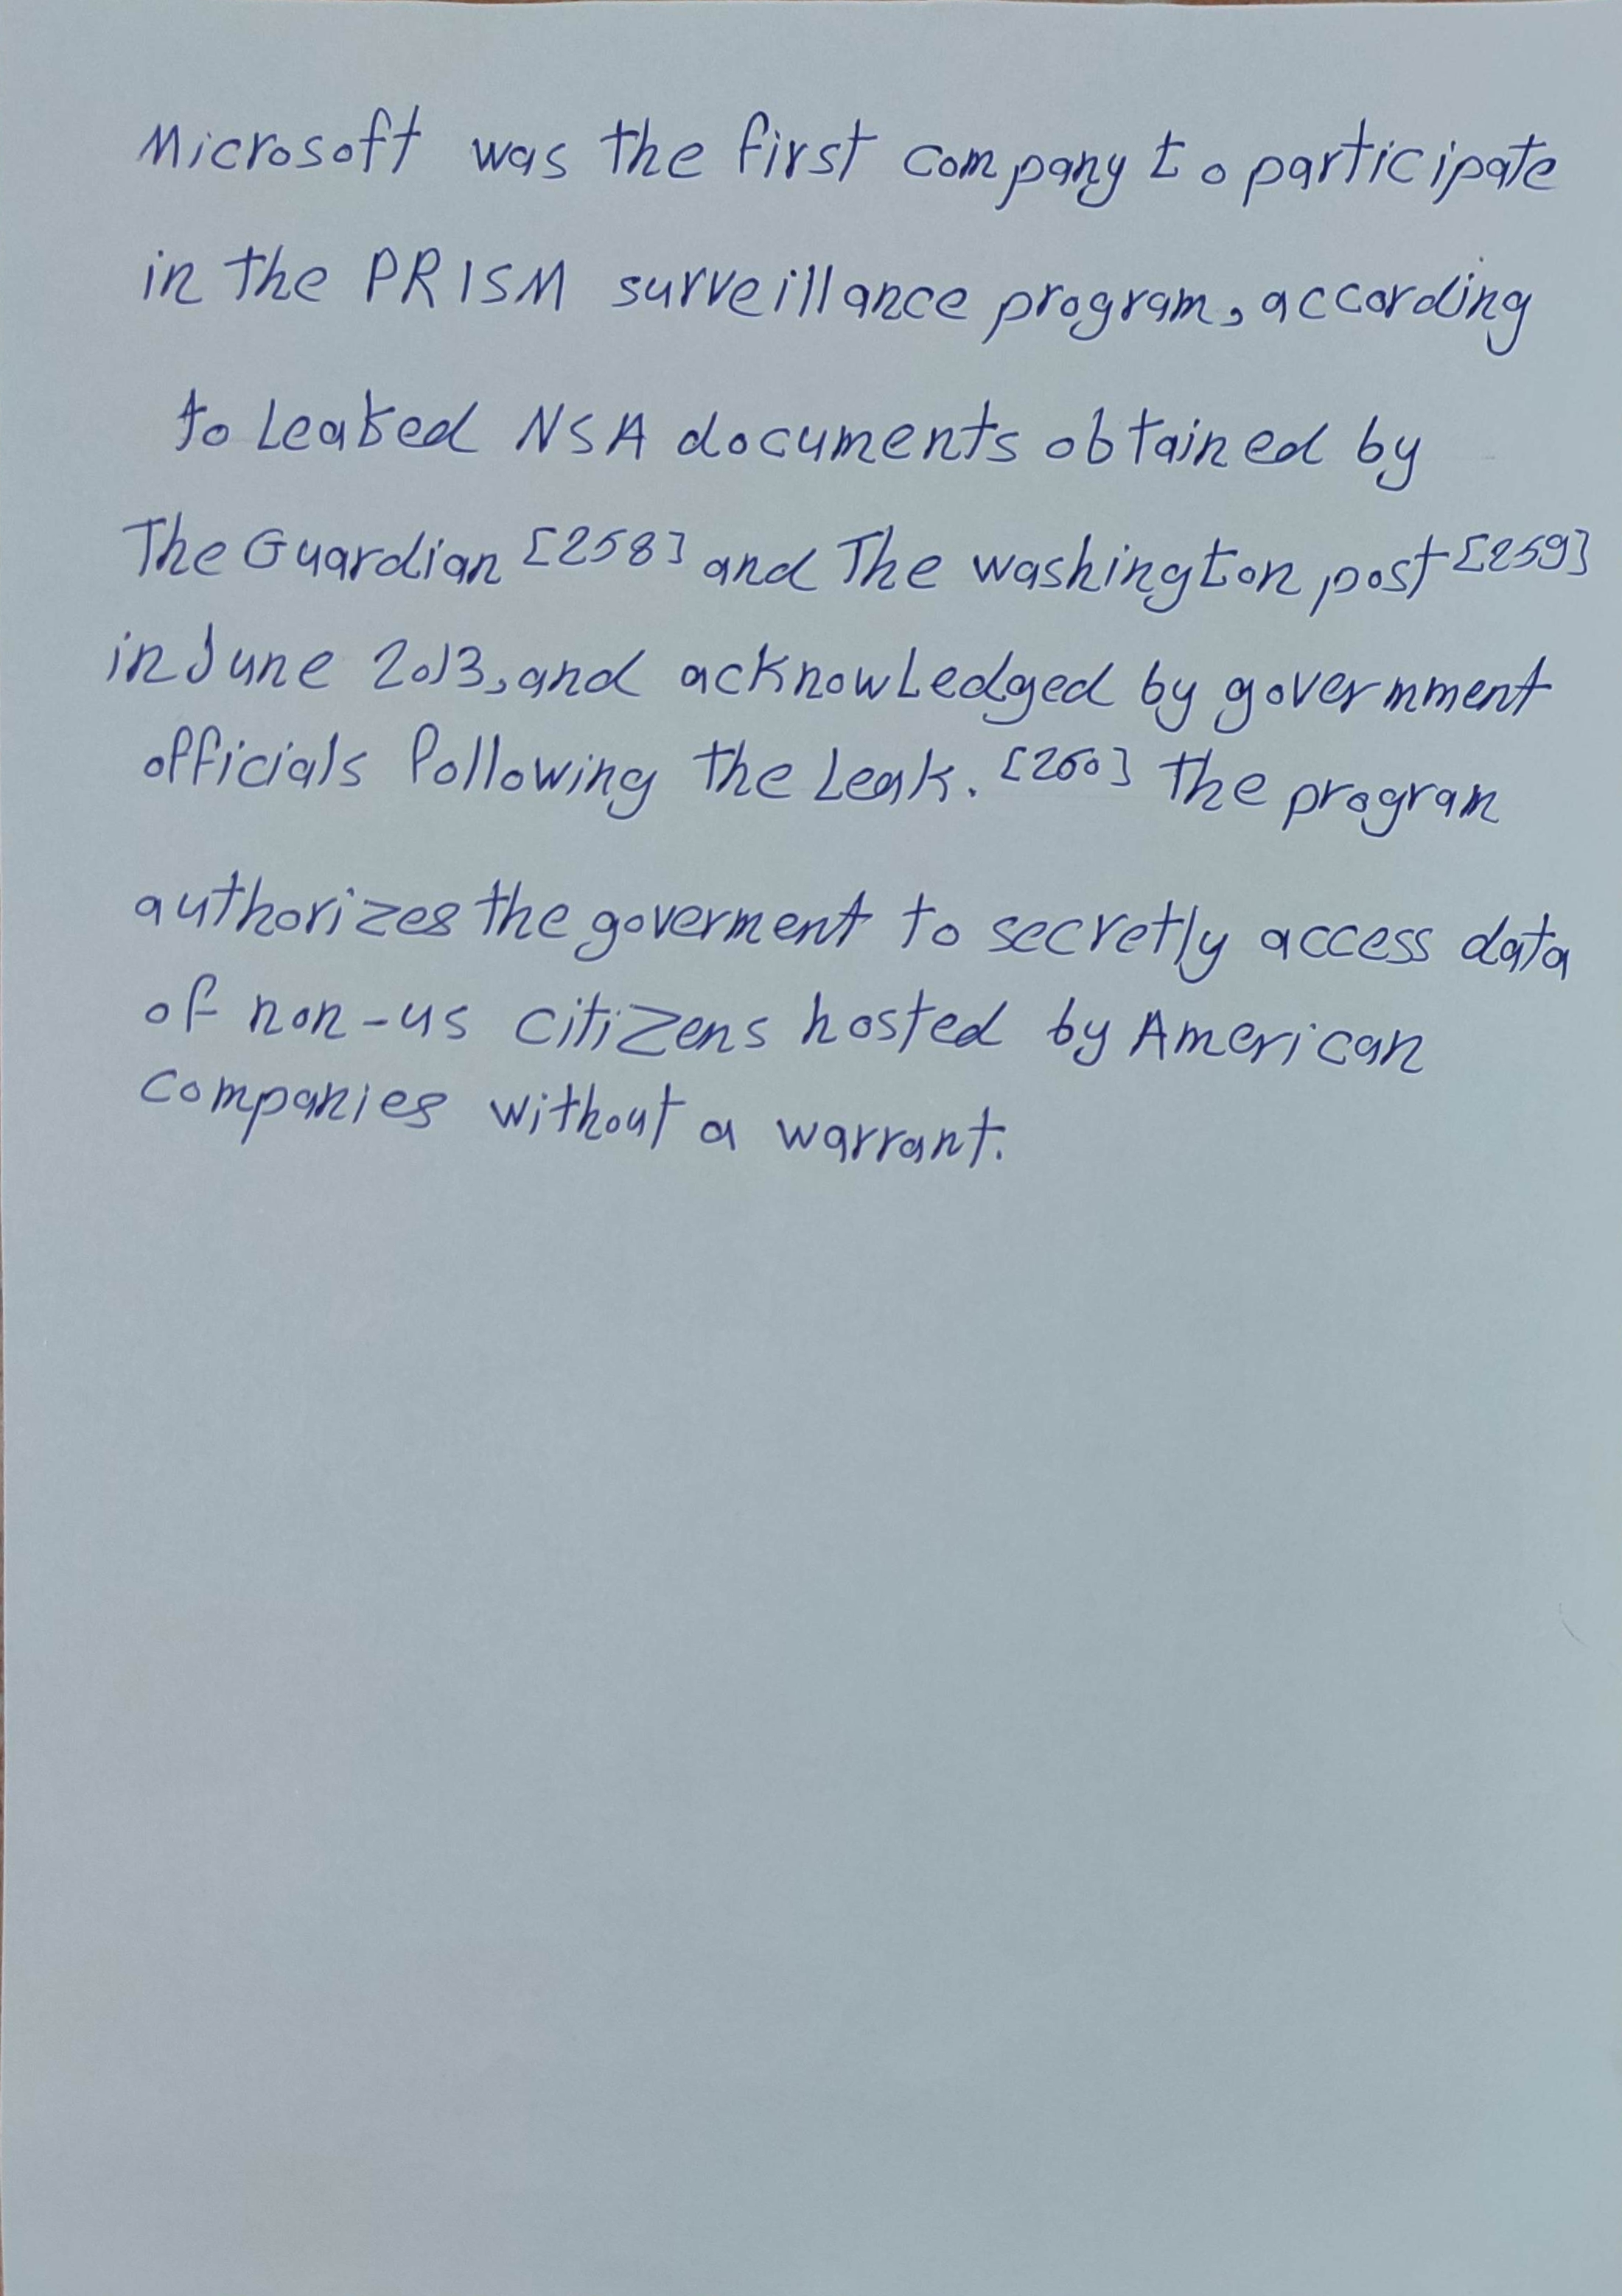 Microsoft was the first company to participate
in the PRISM surveillance program, according
to Leaked NSA documents obtained by
The Guardian [258] and The washington post [259]
in June 2013, and acknowledged by govermment
officials following the Leak. [260] The program
authorizes the goverment to secretly access data
of non-us citizens hosted by American
companies without a warrant.